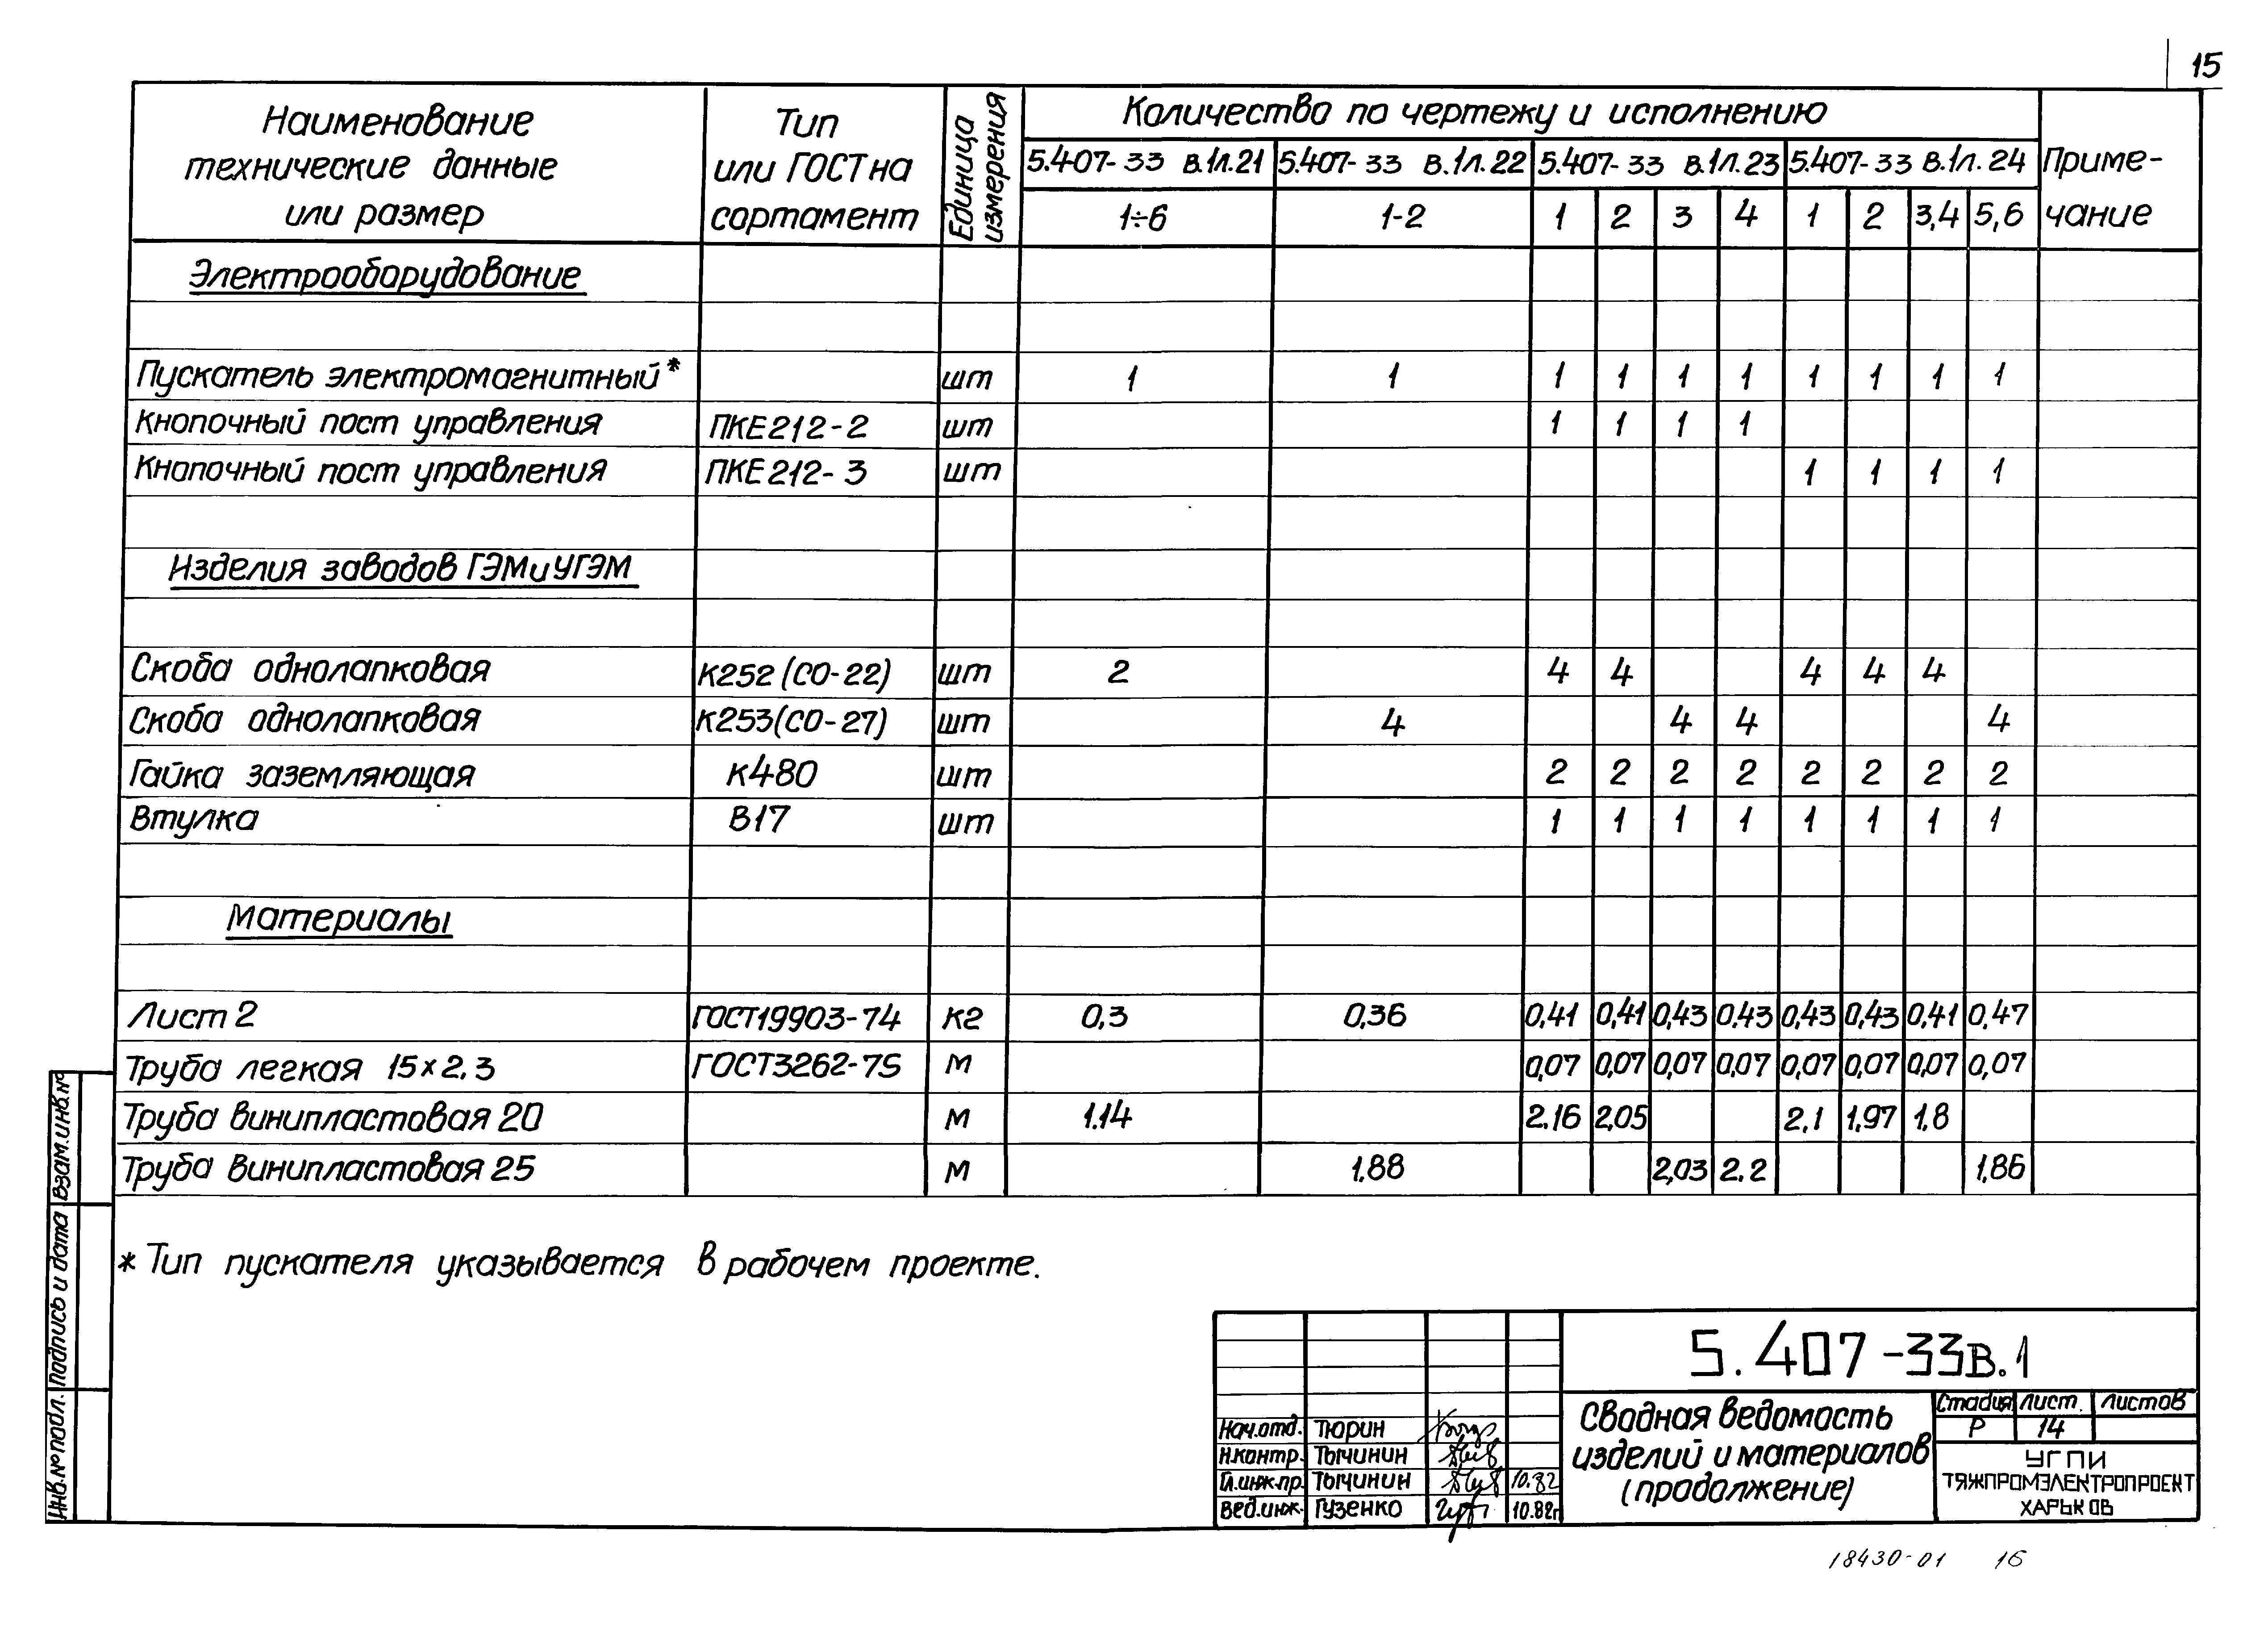 15
Наименование технические данные или размер | Тип или ГОСТ на сортамент | Единица измерения | Количество по чертежу и исполнению | Приме-чание
5.407-33 в.1л.21 | 5.407-33 в.1л.22 | 5.407-33 в.1л.23 | 5.407-33 в.1л.24
1÷6 | 1-2 | 1 | 2 | 3 | 4 | 1 | 2 | 3,4 | 5,6
Электрооборудование
Пускатель электромагнитный* | шт | 1 | 1 | 1 | 1 | 1 | 1 | 1 | 1 | 1 | 1
Кнопочный пост управления | ПКЕ212-2 | шт | 1 | 1 | 1 | 1
Кнопочный пост управления | ПКЕ212-3 | шт | 1 | 1 | 1 | 1
Изделия заводов ГЭМ и УГЭМ
Скоба однолапковая | К252 (СО-22) | шт | 2 | 4 | 4 | 4 | 4 | 4
Скоба однолапковая | К253(СО-27) | шт | 4 | 4 | 4 | 4
Гайка заземляющая | К480 | шт | 2 | 2 | 2 | 2 | 2 | 2 | 2 | 2
Втулка | В17 | шт | 1 | 1 | 1 | 1 | 1 | 1 | 1 | 1
Материалы
Лист 2 | ГОСТ19903-74 | кг | 0,3 | 0,36 | 0,41 | 0,41 | 0,43 | 0,43 | 0,43 | 0,43 | 0,41 | 0,47
Труба легкая 15×2,3 | ГОСТ3262-75 | м | 0,07 | 0,07 | 0,07 | 0,07 | 0,07 | 0,07 | 0,07 | 0,07
Труба винипластовая 20 | м | 1.14 | 2.16 | 2,05 | 2,1 | 1,97 | 1,8
Труба винипластовая 25 | м | 1,88 | 2,03 | 2.2 | 1,86
* Тип пускателя указывается в рабочем проекте.
Инв.№ подл. | Подпись и дата | Взам.инв.№
5.407-33в.1
Нач.отд. | Тюрин
Н.контр. | Тычинин
Гл.инж.пр. | Тычинин | 10.82
Вед.инж. | Гузенко | 10.82г
Сводная ведомость
изделий и материалов
(продолжение)
Стадия | Лист. | Листов
Р | 14
УГПИ
ТЯЖПРОМЭЛЕКТРОПРОЕКТ
ХАРЬКОВ
18430-01 16